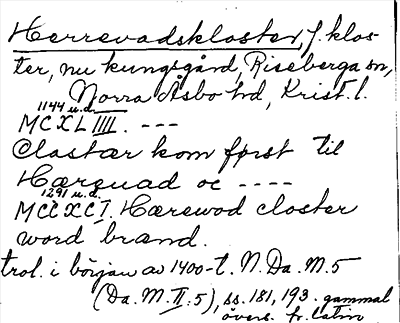 Herrevadskloster, f. klos-
ter, nu kungsgård, Riseberga sn,
Norra Åsbo hd, Krist. l.
1144 u.d.
MCXLIIII. ---
Clostær kom først til
Hærquad oc ----
1291 u.d.
MCCXCI. Hærewod closter
word brænd.
trol. i början av 1400-t. N. Da. M. 5
(Da. M. II:5), ss. 181, 193. gammal
övers. fr. latin